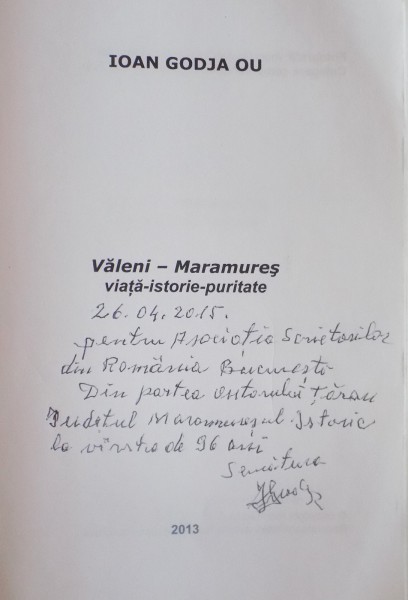 IOAN GODJA OU
Văleni – Maramureş
viaţă-istorie-puritate
26.04.2015.
pentru Asociatia Scriitorilor
din România Bucureşti
Din partea autorului Ţăran
Judetul Maramureşul Istoric
la vîrsta de 96 ani
Semnătura
2013